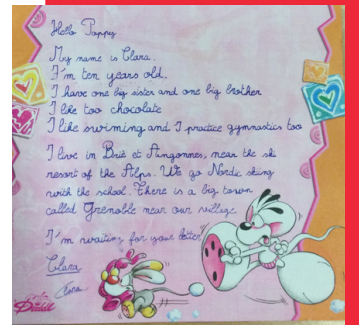 Hello Poppy
My name is Clara.
I'm ten years old.
I have one big sister and one big brother
I like too chocolate
I like swiming and I practice gymnastics too
I live in Brié et Angonnes, near the ski
resort of the Alps. We go Nordic skiing
with the school. There is a big town
called Grenoble near our village.
I'm waiting for your letter
Clara
Diddl